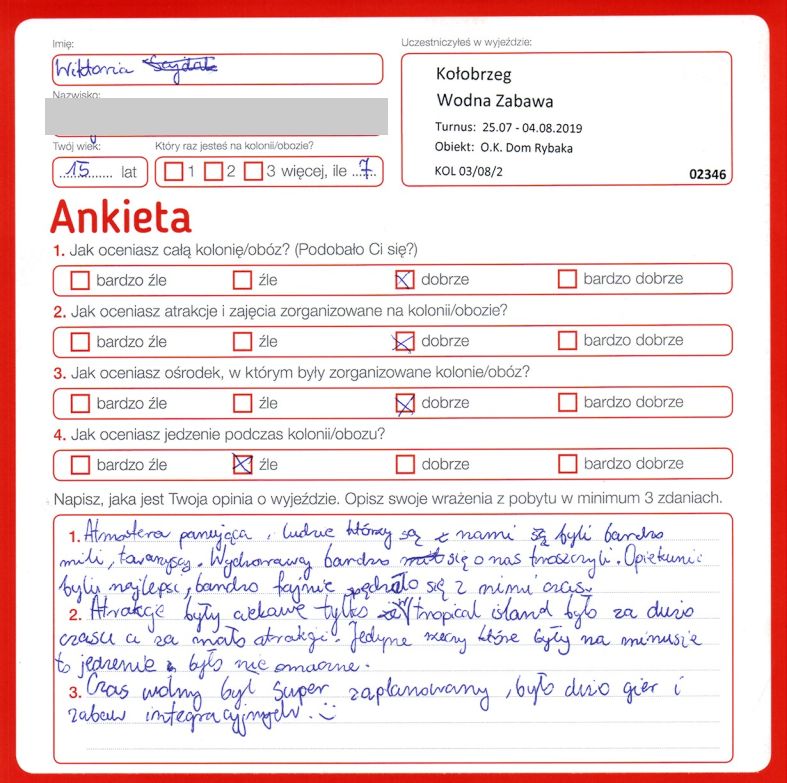 Imię:
Wiktoria
Uczestniczyłeś w wyjeździe:
Kołobrzeg
Wodna Zabawa
Turnus: 25.07 - 04.08.2019
Obiekt: O.K. Dom Rybaka
KOL 03/08/2
02346
Nazwisko:
Twój wiek:
15 lat
Który raz jesteś na kolonii/obozie?
1 2 3 więcej, ile 7
Ankieta
1. Jak oceniasz całą kolonię/obóz? (Podobało Ci się?)
bardzo źle źle dobrze bardzo dobrze
2. Jak oceniasz atrakcje i zajęcia zorganizowane na kolonii/obozie?
bardzo źle źle dobrze bardzo dobrze
3. Jak oceniasz ośrodek, w którym były zorganizowane kolonie/obóz?
bardzo źle źle dobrze bardzo dobrze
4. Jak oceniasz jedzenie podczas kolonii/obozu?
bardzo źle źle dobrze bardzo dobrze
Napisz, jaka jest Twoja opinia o wyjeździe. Opisz swoje wrażenia z pobytu w minimum 3 zdaniach.
1. Atmosfera panująca, ludzie którzy są z nami są byli bardzo
mili, towarzyscy. Wychowawcy bardzo się o nas troszczyli. Opiekunie
byli najlepsi, bardzo fajnie spędzało się z nimi czas.
2. Atrakcje były ciekawe tylko tropical island było za dużo
czasu a za mało atrakcji. Jedyne rzeczy które były na minusie
to jedzenie było nie smaczne.
3. Czas wolny był super zaplanowany, było dużo gier i
zabaw integracyjnych. :)